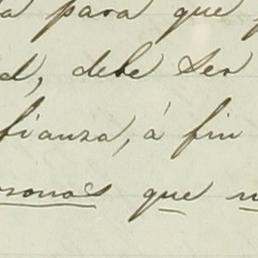 a para que
d, debe ser
fianza, á fin
rsonas que